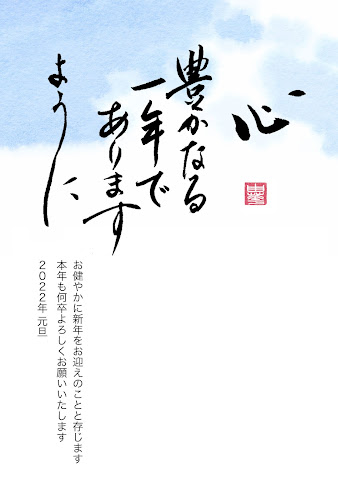 心
豊かなる
一年で
あります
ように
お健やかに新年をお迎えのことと存じます
本年も何卒よろしくお願いいたします
2022年 元旦